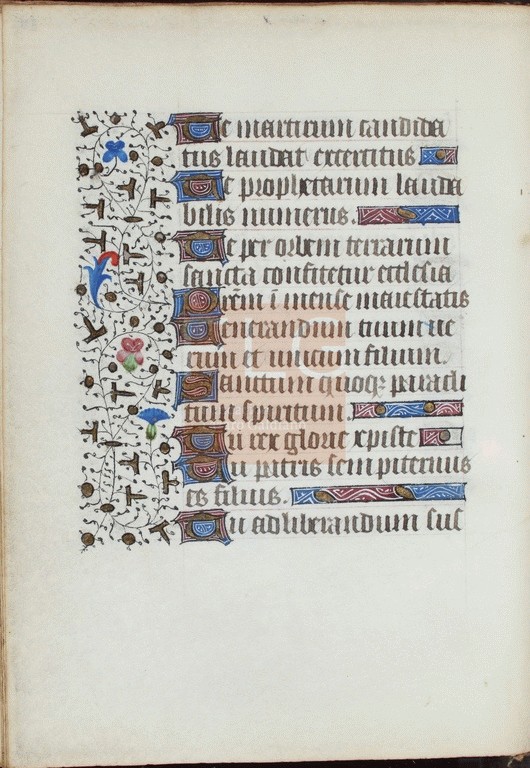 Te martirum candida
tus laudat excercitus
Te prophetarum lauda
bilis numerus.
Te per orbem terrarum
sancta confitetur ecclesia
Prēm ī mense maiestatis
Venerandum tuum ue
rum et unicum filium.
Sanctum quoqȝ paracli
tum spiritum.
Tu rex glorie xpiste
Tu patris sempiternus
es filius.
Tu ad liberandum sus